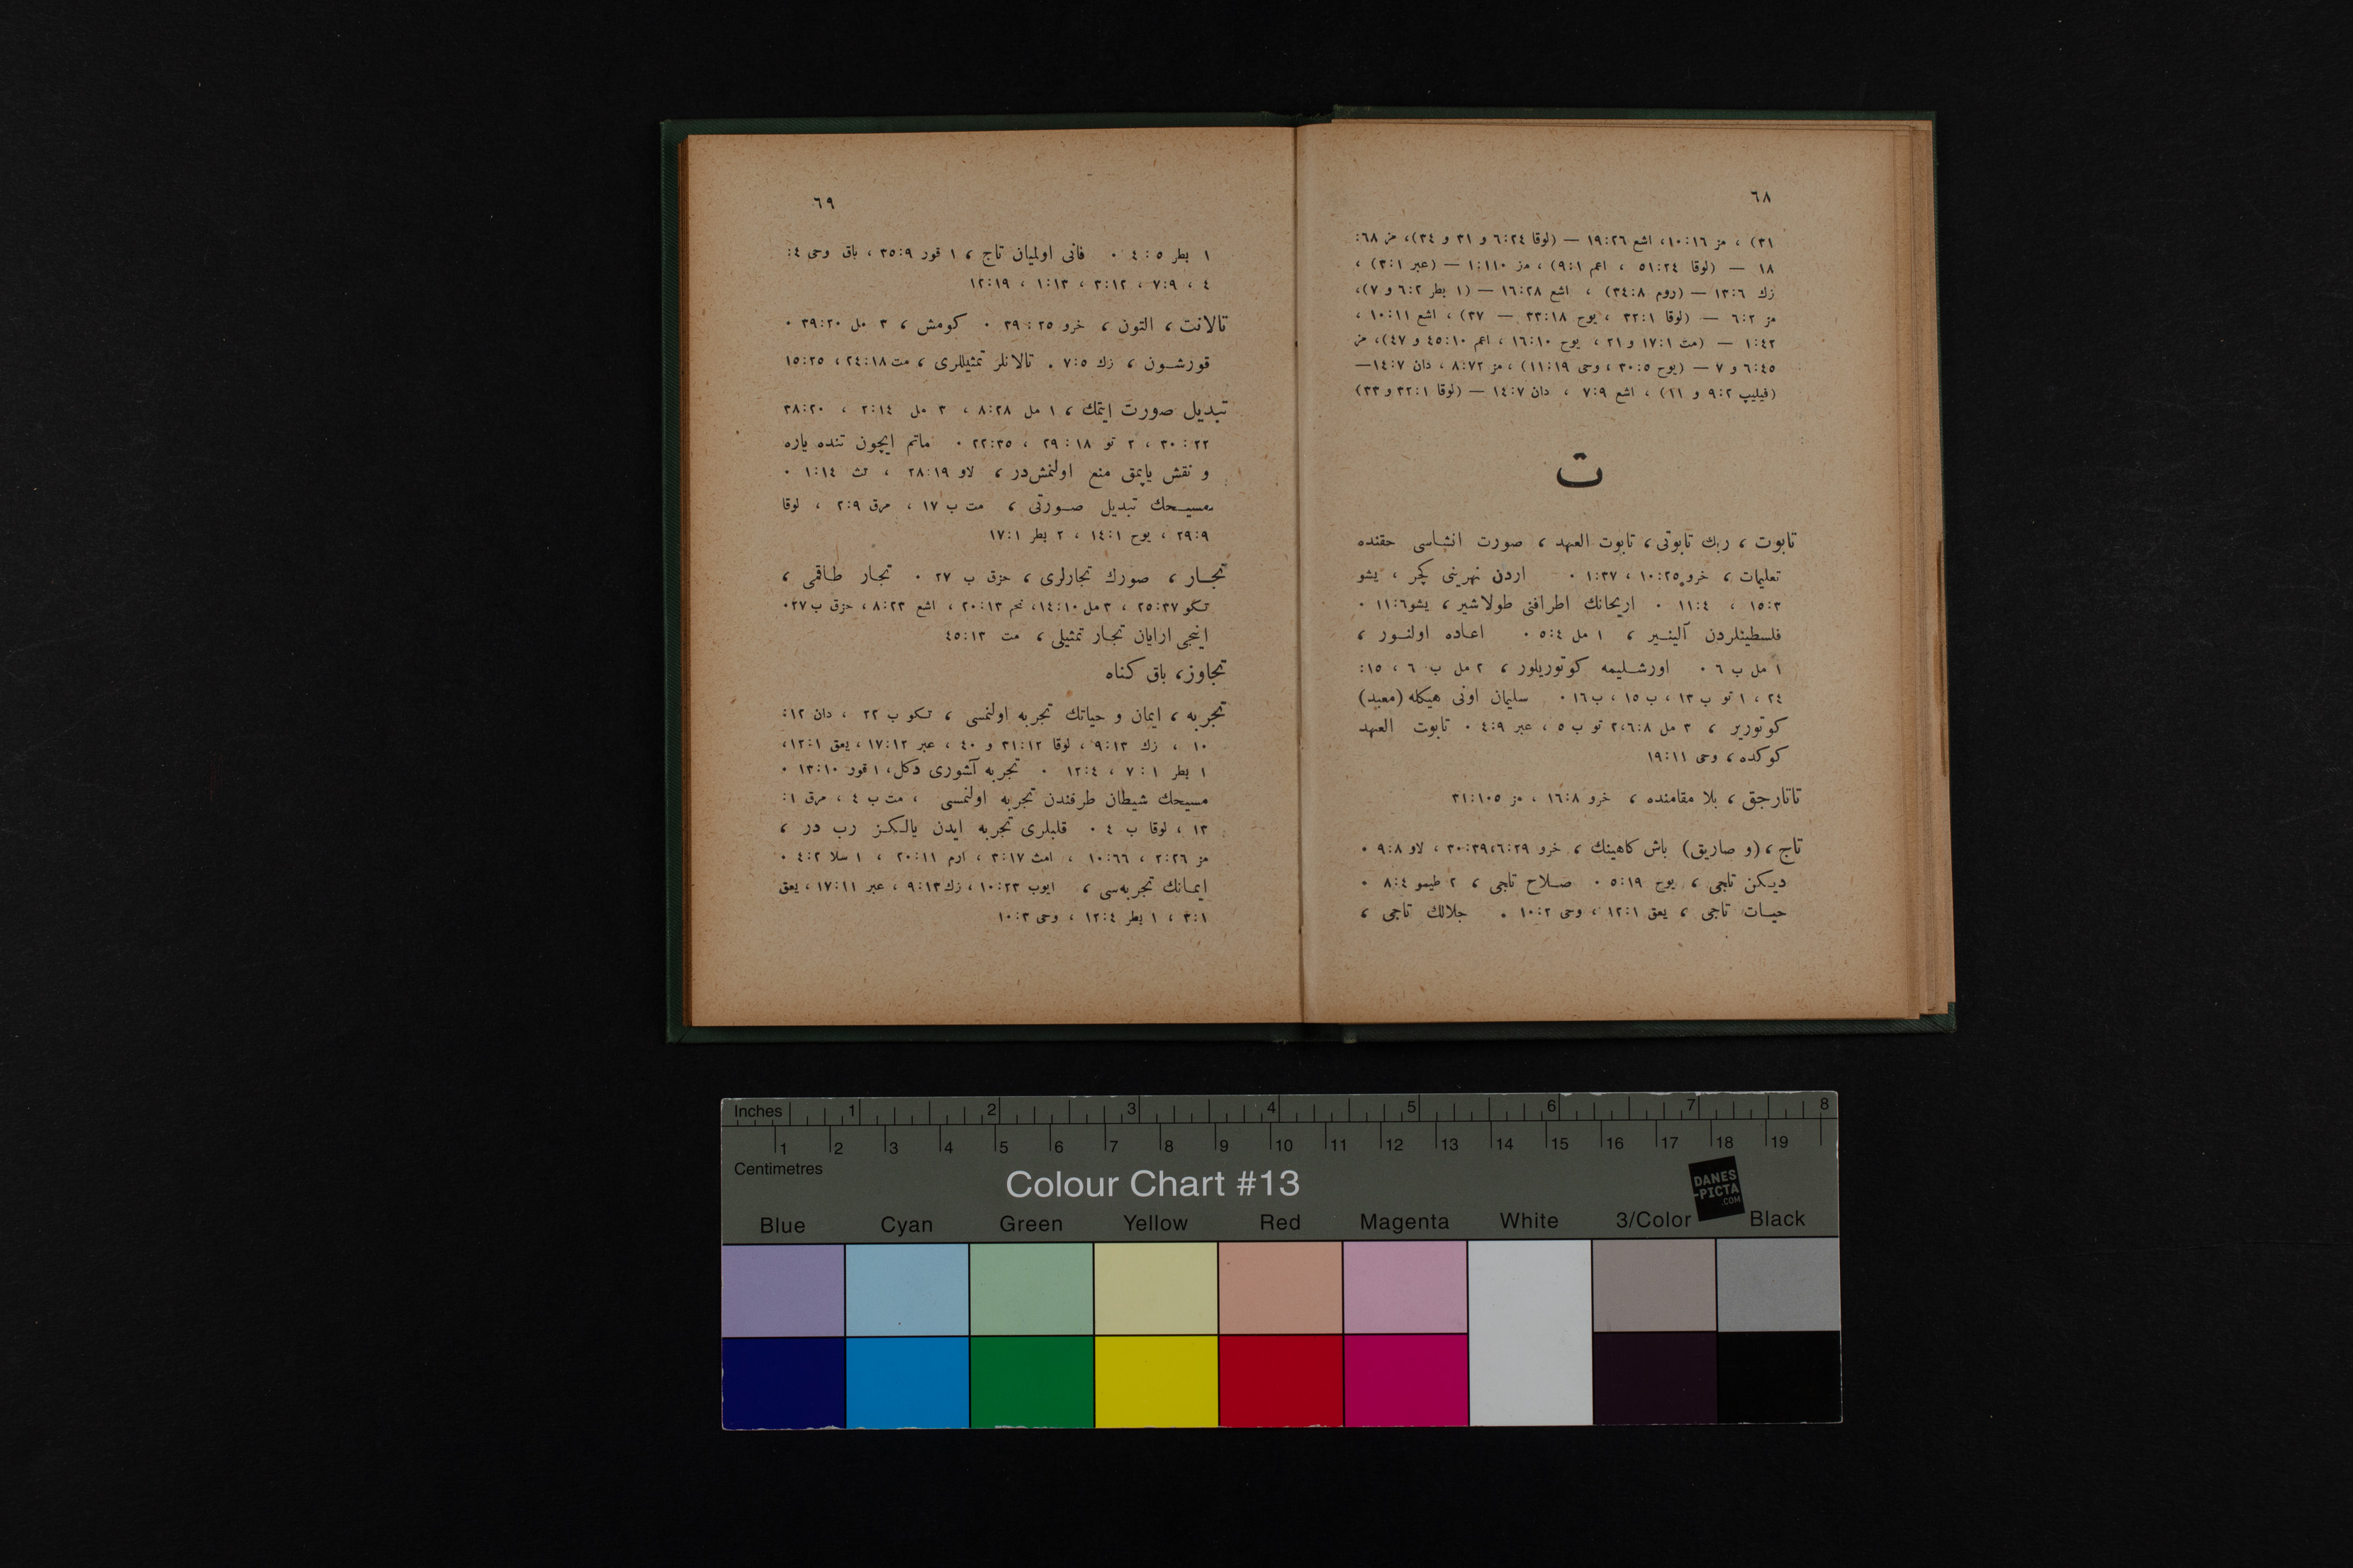 ٦٨
٣١) ، مز ١٠:١٦، اشع ١٩:٢٦ — (لوقا ٦:٢٤ و ٣١ و ٣٤)، مز ٦٨:
١٨ — (لوقا ٥١:٢٤ ، اعم ٩:١) ، مز ١:١١٠ — (عبر ٣:١) ،
زك ١٣:٦ — (روم ٣٤:٨) ، اشع ١٦:٢٨ — (١ بطر ٦:٢ و ٧)،
مز ٦:٢ — (لوقا ٣٢:١ ، يوح ٣٣:١٨ — ٣٧) ، اشع ١٠:١١ ،
١:٤٢ — (مت ١٧:١ و ٢١ ، يوح ١٦:١٠ ، اعم ٤٥:١٠ و ٤٧)، مز
٦:٤٥ و ٧ — (يوح ٣٠:٥ ، وحى ١١:١٩) ، مز ٨:٧٢ ، دان ١٤:٧—
(فيليپ ٩:٢ و ١١) ، اشع ٧:٩ ، دان ١٤:٧ — (لوقا ٣٢:١ و ٣٣)
ت
تابوت ، ربك تابوتى ، تابوت العهد ، صورت انشاسى حقنده
تعليمات ، خرو ١٠:٢٥ ، ١:٣٧ ٠ اردن نهرينى كچر ، يشو
١٥:٣ ، ١١:٤ ٠ اريحانك اطرافنى طولاشير ، يشو ١١:٦ ٠
فلسطينلردن آلينير ، ١ مل ٥:٤ ٠ اعاده اولنور ،
١ مل ب ٦ ٠ اورشليمه كوتوريلور ، ٢ مل ب ٦ ، ١٥:
٢٤ ، ١ تو ب ١٣ ، ب ١٥ ، ب ١٦ ٠ سليمان اونى هيكله (معبد)
كوتورير ، ٣ مل ٦:٨، ٢ تو ب ٥ ، عبر ٤:٩ ٠ تابوت العهد
كوكده ، وحى ١٩:١١
تاتارجق ، بلا مقامنده ، خرو ١٦:٨ ، مز ٣١:١٠٥
تاج ، (و صاريق) باش كاهينك ، خرو ٦:٢٩، ٣٠:٣٩ ، لاو ٩:٨ ٠
ديكن تاجى ، يوح ٥:١٩ ٠ صلاح تاجى ، ٢ طيمو ٨:٤ ٠
حيات تاجى ، يعق ١٢:١ ، وحى ١٠:٢ ٠ جلالك تاجى ،
٦٩
١ بطر ٥ : ٤ ٠ فانى اولميان تاج ، ١ قور ٢٥:٩ ، باق وحى ٤:
٤ ، ٧:٩ ، ٣:١٢ ، ١:١٣ ، ١٢:١٩
تالانت ، التون ، خرو ٢٥ : ٣٩ ٠ كومش ، ٣ مل ٣٩:٢٠ ٠
قورشون ، زك ٧:٥ ٠ تالانلر تمثيللرى ، مت ٢٤:١٨ ، ١٥:٢٥
تبديل صورت ايتمك ، ١ مل ٨:٢٨ ، ٣ مل ٢:١٤ ، ٣٨:٢٠
٢٢ : ٣٠ ، ٢ تو ١٨ : ٢٩ ، ٢٢:٣٥ ٠ ماتم ايچون تنده ياره
و نقش ياپمق منع اولنمش‌در ، لاو ٢٨:١٩ ، تث ١:١٤ ٠
مسيحك تبديل صورتى ، مت ب ١٧ ، مرق ٢:٩ ، لوقا
٢٩:٩ ، يوح ١٤:١ ، ٢ بطر ١٧:١
تجار ، صورك تجارلرى ، حزق ب ٢٧ ٠ تجار طاقمى ،
تكو ٢٥:٣٧ ، ٣ مل ١٤:١٠، نحم ٢٠:١٣ ، اشع ٨:٢٣ ، حزق ب ٢٧ ٠
اينجى ارايان تجار تمثيلى ، مت ٤٥:١٣
تجاوز، باق كناه
تجربه ، ايمان و حياتك تجربه اولنمسى ، تكو ب ٢٢ ، دان ١٢:
١٠ ، زك ٩:١٣ ، لوقا ٣١:١٢ و ٤٠ ، عبر ١٧:١٢ ، يعق ١٢:١،
١ بطر ١ : ٧ ، ١٢:٤ ٠ تجربه آشورى دكل، ١ قور ١٣:١٠ ٠
مسيحك شيطان طرفندن تجربه اولنمسى ، مت ب ٤ ، مرق ١:
١٣ ، لوقا ب ٤ ٠ قلبلرى تجربه ايدن يالكز رب در ،
مز ٢:٢٦ ، ١٠:٦٦ ، امث ٣:١٧ ، ارم ٢٠:١١ ، ١ سلا ٤:٢ ٠
ايمانك تجربه‌سى ، ايوب ١٠:٢٣ ، زك ٩:١٣ ، عبر ١٧:١١ ، يعق
٣:١ ، ١ بطر ١٢:٤ ، وحى ١٠:٣
Inches 1 2 3 4 5 6 7 8
1 2 3 4 5 6 7 8 9 10 11 12 13 14 15 16 17 18 19
Centimetres
Colour Chart #13
DANES
-PICTA
.COM
Blue Cyan Green Yellow Red Magenta White 3/Color Black